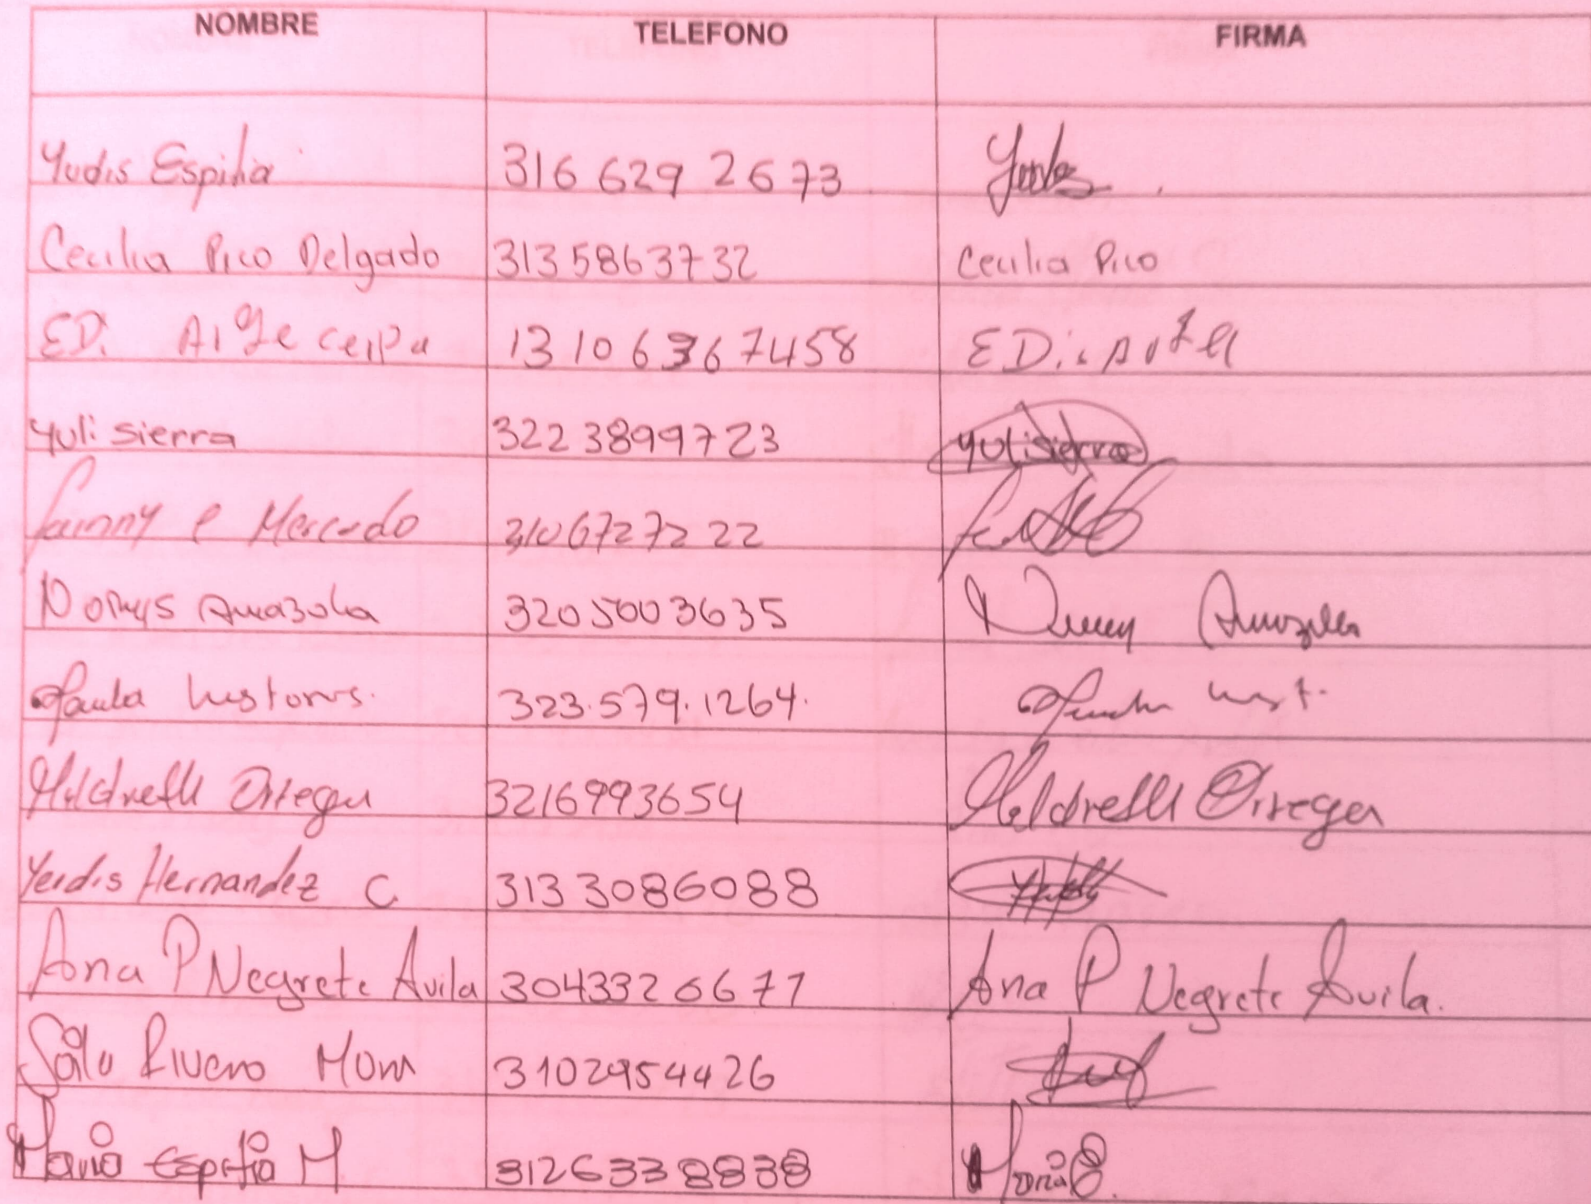 NOMBRE TELEFONO FIRMA
Yudis Espitia 316 629 2673 Yudis
Cecilia Pico Delgado 313 5863732 Cecilia Pico
ED. 13 10 6 3 6 7458 EDi.
Yuli sierra 322 3899723 Yulisierra
Fanny e Mercado 3106727222
Norys Amazola 3205003635
Paula 323.579.1264.
Hildrelli Orrega 3216993654 Hildrelli Orrega
Yerdis Hernandez C. 313 3086088
Ana P Negrete Avila 3043326671 Ana P Negrete Avila.
Rivero 3102954426
Maria Espitia M 3126338838 Maria E.